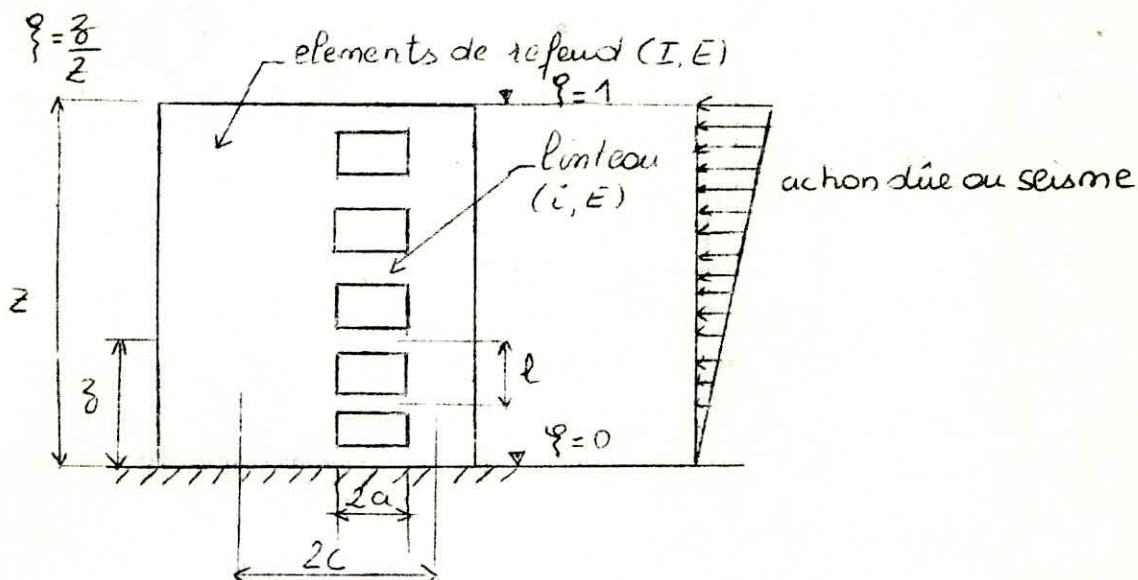 ξ = z/Z
elements de refend (I, E)
ξ = 1
linteau
(i, E)
action dûe au seisme
Z
z
l
ξ = 0
2a
2c